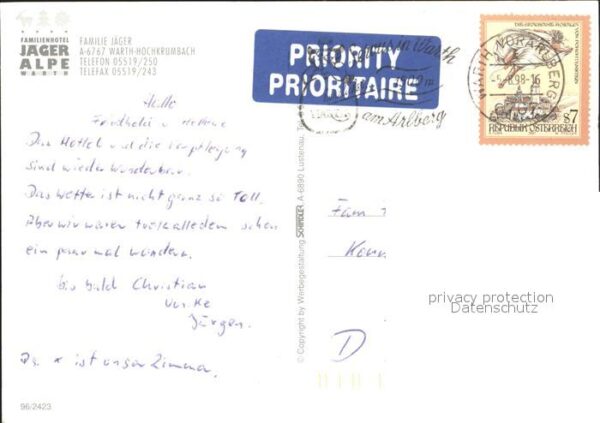 FAMILIENHOTEL
JÄGER
ALPE
WARTH
FAMILIE JÄGER
A-6767 WARTH-HOCHKRUMBACH
TELEFON 05519/250
TELEFAX 05519/243
PRIORITY
PRIORITAIRE
in Warth
am Arlberg
WARTH VORARLBERG
98-16
S7
REPUBLIK ÖSTERREICH
Hallo
Friedhold u
Das Hottel und die Verpflegung
sind wieder Wunderbar.
Das Wetter ist nicht ganz so Toll.
Aber wir waren trotz alledem schon
ein paar mal wandern.
bis bald Christian
Jürgen.
Das x ist unser Zimmer.
© Copyright by Werbegestaltung A-6890 Lustenau,
Fam
D
privacy protection
Datenschutz
96/2423